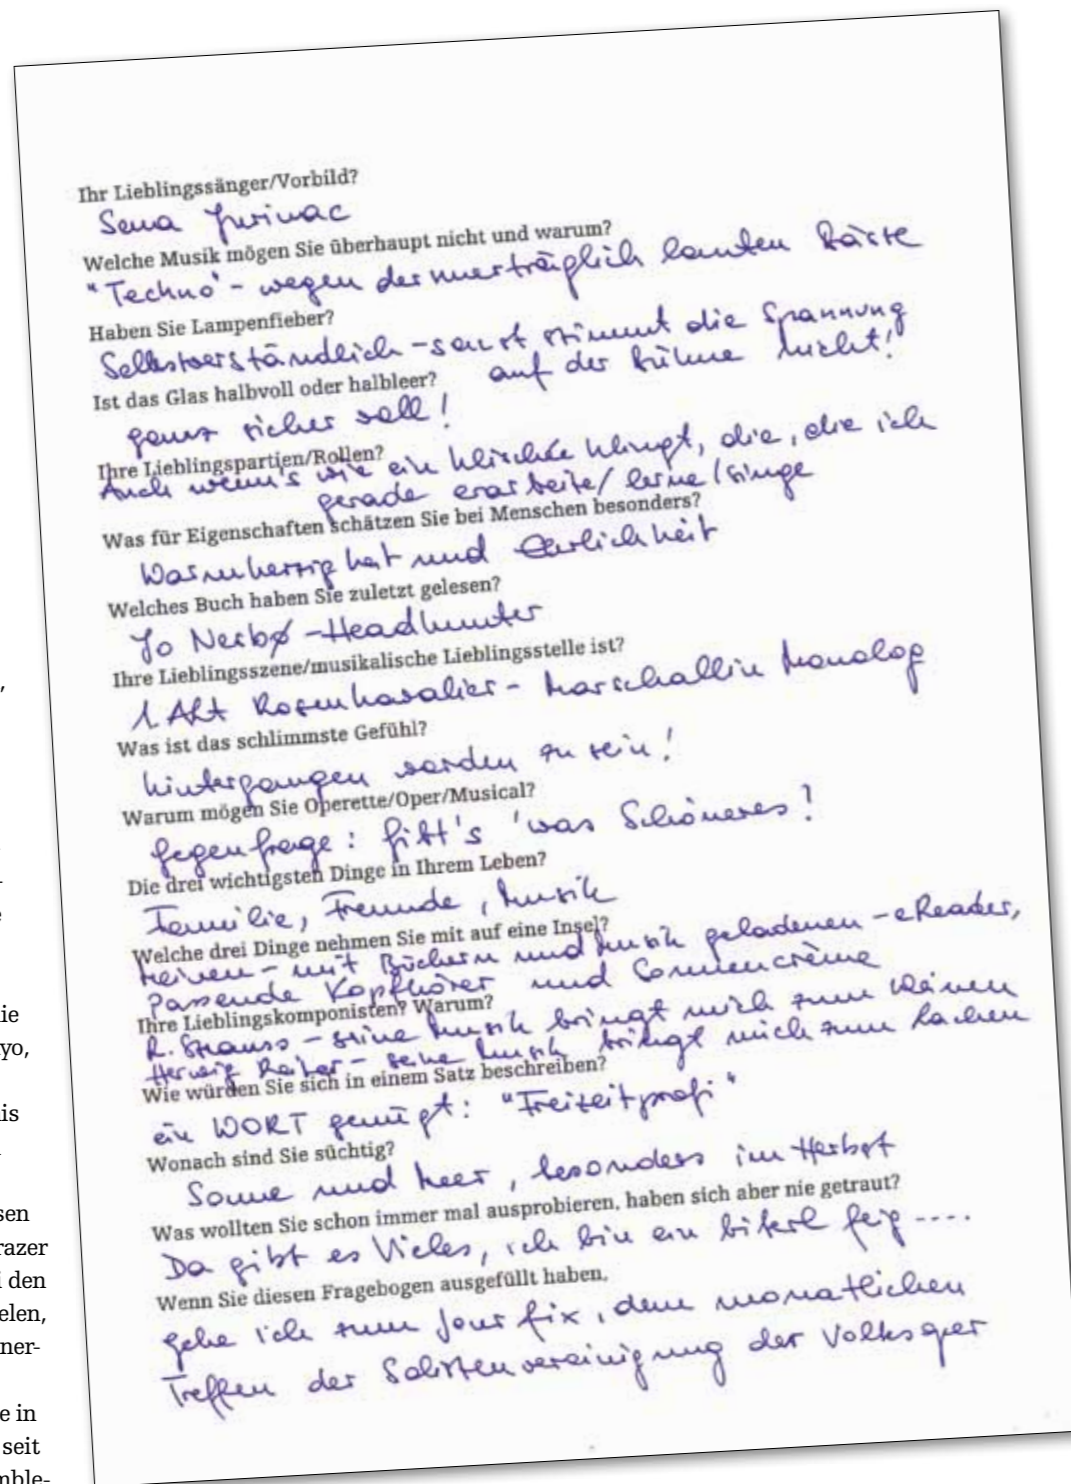 Ihr Lieblingssänger/Vorbild?
Sena Jurinac
Welche Musik mögen Sie überhaupt nicht und warum?
"Techno" - wegen der unerträglich lauten Bässe
Haben Sie Lampenfieber?
Selbstverständlich - sonst stimmt die Spannung
auf der Bühne nicht!
Ist das Glas halbvoll oder halbleer?
ganz sicher voll!
Ihre Lieblingspartien/Rollen?
Auch wenn's wie ein Klischée klingt, die, die ich
gerade erarbeite/lerne/singe
Was für Eigenschaften schätzen Sie bei Menschen besonders?
Warmherzigkeit und Ehrlichkeit
Welches Buch haben Sie zuletzt gelesen?
Jo Nesbø - Headhunter
Ihre Lieblingsszene/musikalische Lieblingsstelle ist?
1 Akt Rosenkavalier - Marschallin Monolog
Was ist das schlimmste Gefühl?
hintergangen worden zu sein!
Warum mögen Sie Operette/Oper/Musical?
Gegenfrage: Gibt's 'was Schöneres?
Die drei wichtigsten Dinge in Ihrem Leben?
Familie, Freunde, Musik
Welche drei Dinge nehmen Sie mit auf eine Insel?
Meinen - mit Büchern und Musik geladenen - eReader,
Passende Kopfhörer und Sonnencrème
Ihre Lieblingskomponisten? Warum?
R. Strauss - seine Musik bringt mich zum Weinen
Herwig Reiter - seine Musik bringt mich zum Lachen
Wie würden Sie sich in einem Satz beschreiben?
ein WORT genügt: "Freizeitprofi"
Wonach sind Sie süchtig?
Sonne und Meer, besonders im Herbst
Was wollten Sie schon immer mal ausprobieren, haben sich aber nie getraut?
Da gibt es Vieles, ich bin ein bißerl feig ....
Wenn Sie diesen Fragebogen ausgefüllt haben,
gehe ich zum Jour fix, dem monatlichen
Treffen der Solistenvereinigung der Volksoper
,
ie
yo,
is
sen
razer
i den
elen,
ner-
e in
seit
mble-